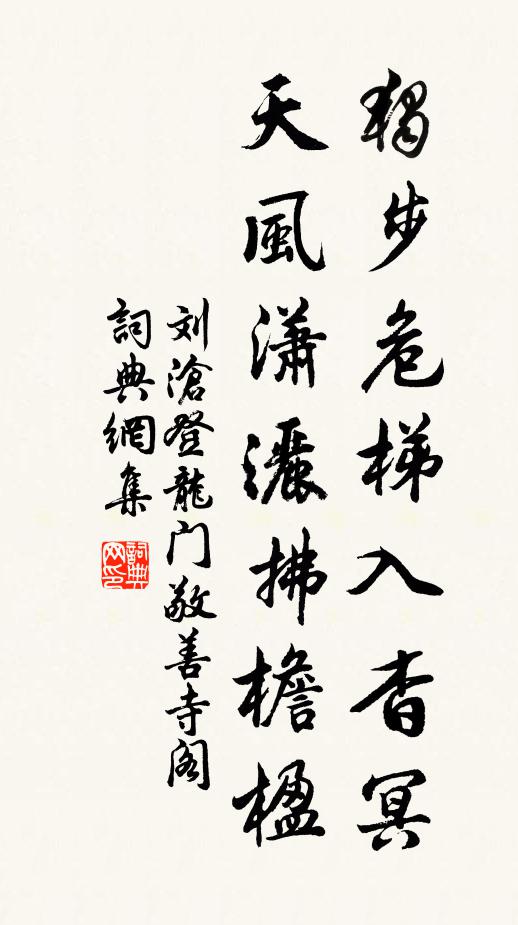 獨步危梯入杳冥
天風瀟灑拂檐楹
刘滄登龍门敬善寺阁
詞典網集
詞典网印